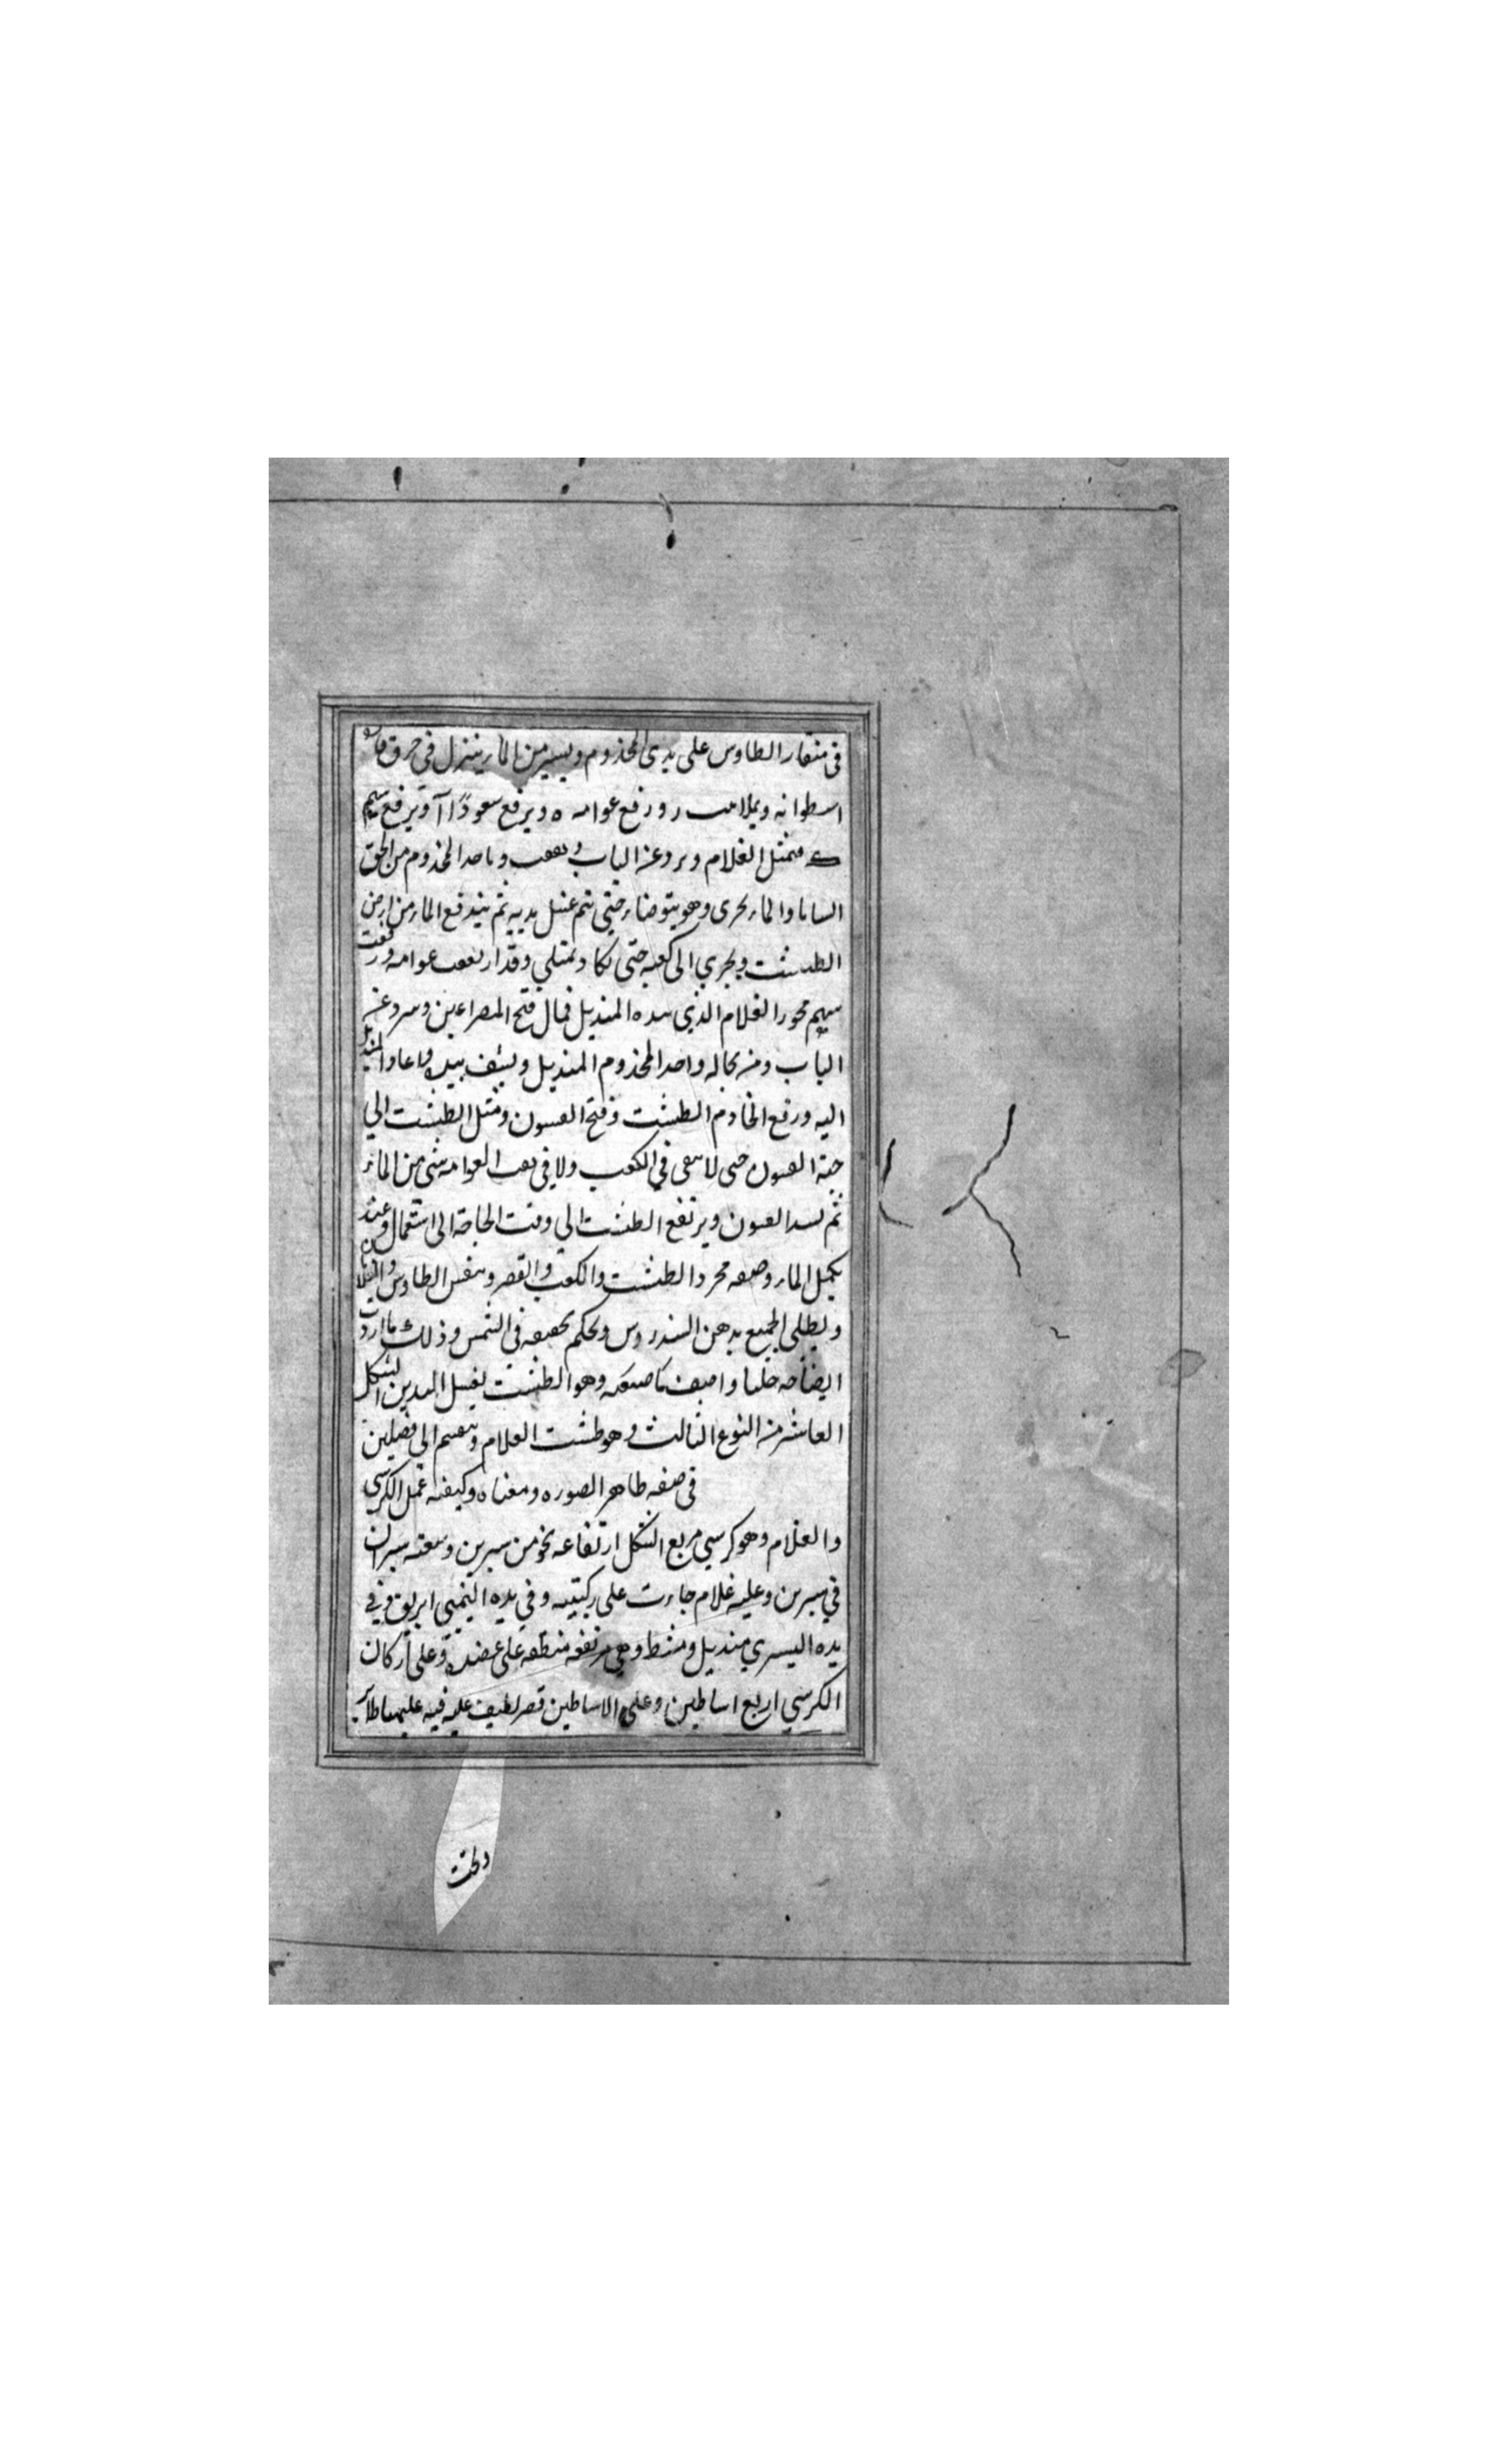 في منقار الطاوس على يدي المخذوم ويسير من الماء ينزل في خرق قاعدة
اسطوانه ويملا بيت ر ورفع عوامه ه ويرفع سعودًا آ ويرفع سهم
ك فتمثل الغلام وبرد عن الباب ويقف وياخذ المخذوم من الحق
الماء يجري وهو يتوضاء حتى يتم غسل يديه ثم يندفع الماء من ارض
الطشت ويجري الى كعبه حتى يكاد يمتلي وقد ارتفعت عوامه و ورفعت
سهم محور الغلام الذي بيده المنديل فمال فتح المصراعين وبرد عن
الباب ومن بحاله واخذ المخذوم المنديل وينشف يديه واعاد المنديل
اليه ورفع الخادم الطشت وفتح الفيون ومثل الطشت الي
جهة الفيون حتى لا يبقى في الكعب ولا في بيت العوامه شي من الماء
ثم يسد الفيون ويرتفع الطشت الي وقت الحاجة الى استعماله وعند
يكمل الماء وصفه مجرد الطشت والكعب والقصر ونفس الطاوس والغلامان
ويطلى الجميع بدهن السندروس ويحكم تجفيفه في الشمس وذلك ما اردت
ايضاحه جليا واصف ما صنعته وهو الطشت لغسل اليدين الشكل
العاشر من النوع الثالث وهو طشت الغلام وينقسم الي فصلين
في صفه ظاهر الصوره ومعناه وكيفيه عمل الكرسي
والغلام وهو كرسي مربع الشكل ارتفاعه نحو من شبرين وسعته شبران
في شبرين وعليه غلام جاث على ركبتيه وفي يده اليمني ابريق وفي
يده اليسري منديل ومشط وهي مرتفعه منطقه على عضده وعلى اركان
الكرسي اربع اساطين وعلى الاساطين قصر لطيف عليه قبه عليها طاير
وتحت